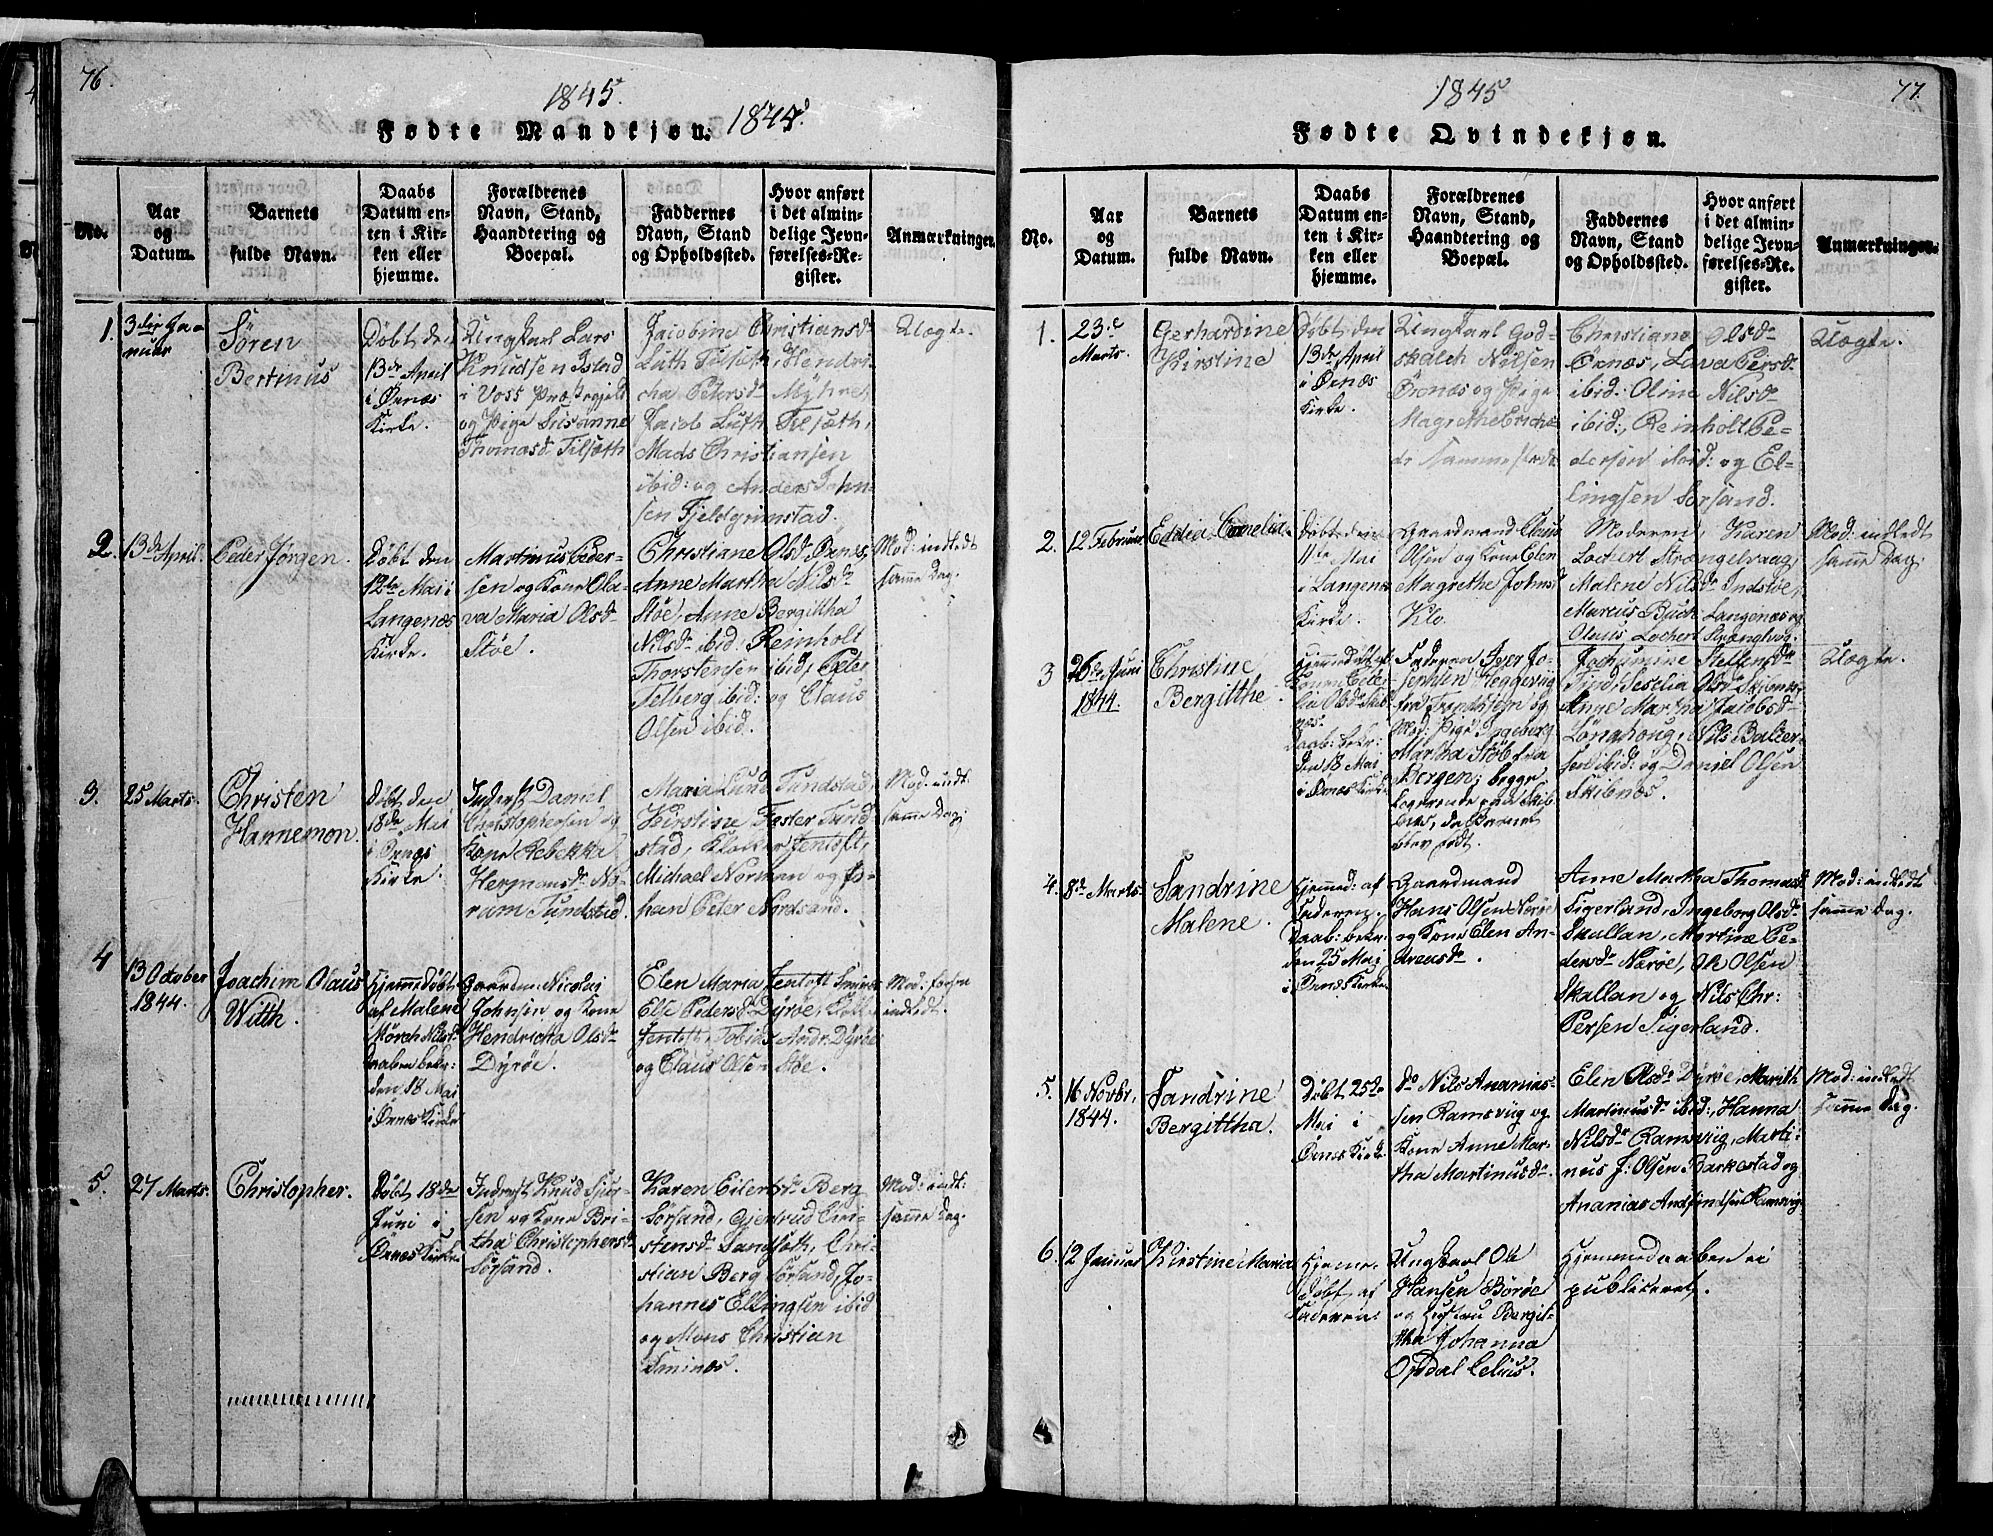 76.
1845.
Fødte Mandkjøn. 1845.
No.
Aar
og
Datum.
Barnets
fulde Navn.
Daabs
Datum en-
ten i Kir-
ken eller
hjemme.
Forældrenes
Navn, Stand,
Haandtering og
Boepæl.
Faddernes
Navn, Stand
og Opholdssted.
Hvor anført
i det almin-
delige Jevn-
førelses-Re-
gister.
Anmærkninger.
1.
3die Ja-
nuar
Søren
Bertinus
Døbt den
13de April
i Ørnæs
Kirke.
Ungkarl Lars
Knudsen Istad
i Voss Præstegield
og Pige Susanne
Thomasd. Tilsæth
Jacobine Christiansd.
Luth Tilsæth, Hendri-
cha Petersd. Myhre,
Jacob Luth Tilsæth,
Mads Christiansen
ibid: og Anders John-
sen Fjeldgrimstad.
Uægte.
2.
13de April.
Peder Jørgen.
Døbt den
12te Mai i
Langenæs
Kirke.
Martinus Peder-
sen og Kone Ola-
va Maria Olsd.
Støe.
Christiane Olsd. Ørnes,
Anne Martha Nilsd.
Støe, Anne Bergittha
Nilsd. ibid. Reinholt
Thorstensen ibid, Peter
Felberg ibid: og Claus
Olsen ibid.
Mod: indledt
samme Dag.
3.
25 Marts.
Christen
Hannemon.
Døbt den
18de Mai
i Ørnes
Kirke.
Inderst Daniel
Christophersen og
Kone Rebekka
Hermansd. No-
rum Tundstad.
Maria Lund Tundstad,
Kirstine Fester Tund
stad, Kloker Jentoft,
Michael Norman og Jo-
han Peter Nordsand.
Mod: indt:
samme Dag:
4
13 October
1844.
Joachim Olaus
Witth.
Hjemmedøbt
af Malene
Mörch Nilsd.
Daaben bekr:
den 18 Mai
i Ørnes Kirke
Gaardm. Nicolai
Johnsen og Kone
Hendricha Olsd.
Dyrøe.
Elen Maria Jentoft
Else Pedersd. Dyrøe, Klokker
Jentoft, Tobias Andr. Dyrøe
og Claus Olsen Støe.
Mod. forhen
indledt.
5.
27 Marts.
Christopher.
Døbt 18de
Juni i
Ørnes Kirke
Inderst Knud Sjur-
sen og Kone Bri-
tha Christophersd.
Sørsand.
Karen Eilertsd. Berg
Sørsand, Gjertrud Chri-
stensd. Sandsæth, Chri-
stian Berg Sørsand, Jo-
hannes Ellingsen ibid
og Mons Christian
Sminæs.
Mod: indt:
samme Dag.
77.
1845
Fødte Qvindekjøn.
No.
Aar
og
Datum.
Barnets
fulde Navn.
Daabs
Datum en-
ten i Kir-
ken eller
hjemme.
Forældrenes
Navn, Stand,
Haandtering og
Boepæl.
Faddernes
Navn, Stand
og Opholdssted.
Hvor anført
i det almin-
delige Jevn-
førelses-Re-
gister.
Anmærkninger.
1.
23.
Marts.
Gerhardine
Kirstine
Døbt den
13de April
i Ørnæs
Kirke.
Ungkarl God-
skalch Nilsen
Ørnæs og Pige
Magrethe Erichs-
dr samme stæds
Christiane Olsd.
Ørnæs, Lava Persd.
ibid: Oline Nilsd.
ibid:, Reinholt Pe-
dersen Nord: og El-
lingsen Sørsand.
Uægte.
2.
12 Februar
Eddia Cornelia.
Døbt den
11te Mai
i Langenæs
Kirke.
Gaardmand Claus
Olsen og Kone Elen
Magrethe Johnsd.
Klo.
Moderen, Karen
Lockert Strængelvaag,
Malene Nilsd. Indstøe,
Marcus Buch Langenæs og
Olaus Lockert Strænglvaag.
Mod: indledt
samme Dag.
3
26de Juni
1844.
Christine
Bergitthe.
Hjemmedøbt af
Konen Ceci-
lia Olsd. Skib
næs.
Daab: bekr:
den 18 Mai
i Ørnes Kirke
Faderen Iver Jo-
sephsen
Mod: Pige Ingeborg
Martha Støb fra
Bergen; begge
Logerende paa Skib-
næs, da Barnet
blev født.
Jochumine Steffensd.
Tind, Seselia Olsd. Skibnes,
Anne Martha Jacobsd.
Lønshoug, Nils Balter-
sen ibid: og Daniel Olsen
Skibnæs.
Uægte.
4.
8de Marts
Sandrine
Malene.
Hjemmed: af
Faderen,
Daab: bekr:
den 25 Mai
i Ørnes Kirke
Gaardmand
Hans Olsen Nærøe
og Kone Elen An-
dreasd.
Anne Martha Thomasd.
Tigerland, Ingeborg Olsd.
Skallan, Martine Pe-
dersd. Nærøe, Ole Olsen
Skallan og Nils Chr:
Persen Tigerland.
Mod: indledt
samme Dag.
5.
16 Novbr.
1844.
Sandrine
Bergittha.
Døbt 25de
Mai i
Ørnes Kirke
do Nils Ananias-
sen Ramsviig og
Kone Anne Mar-
tha Martinusd.
Elen Olsd. Dyrøe, Marith
Martinusd. ibid:, Hanna
Nilsd. Ramsviig, Marti-
nus J: Olsen Barkestad og
Ananias Andfindsen Ramsvig
Mod: indledt
samme Dag.
6.
12 Januar
Kirstine Maria
Hjemme-
døbt af
Faderen.
Ungkarl Ole
Hansen Børøe
og Hustru Bergit-
tha Johanna
Opdal Celius.
Hjemmedaaben ei
publiceret.